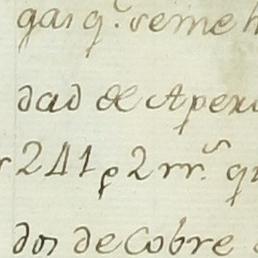 gas q.^e se me h
dad de Apera
r 241 p 2 rr.^s qu
dos de Cobre